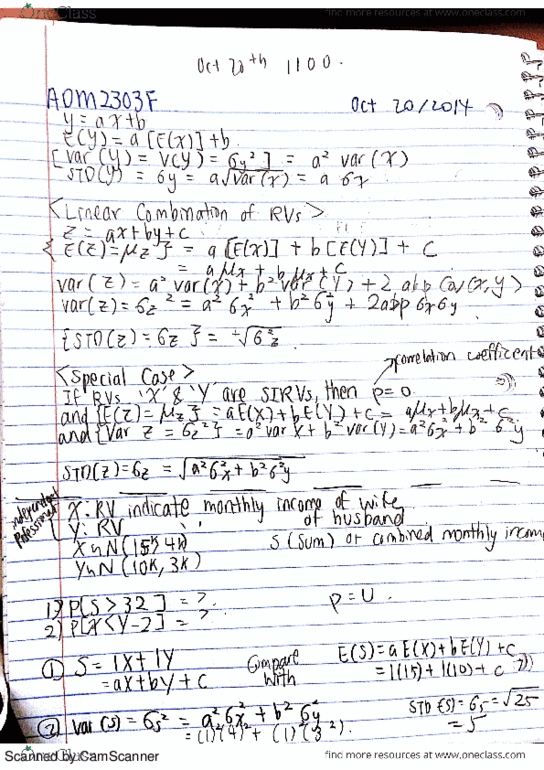 OneClass
find more resources at www.oneclass.com
Oct 20th 1100.
ADM2303F Oct 20/2014
y = ax+b
E(Y) = a [E(X)] + b.
[Var (Y) = V(Y) = 6y²] = a² var (x)
STD(Y) = 6y = a√var(x) = a 6x
<Linear Combination of RVs>
z = ax+by+c
{E(Z)=μz} = a [E(x)] + b [E(Y)] + C
= aμx + bμx + c
var(z) = a² var(x) + b² var(Y) + 2 abp Cov(x,y)
var(z) = 6z² = a²6x² + b²6y² + 2abp 6x6y
{STD(z) = 6z} = +√6²z
correlation coefficient
<Special Case>
If RVs 'X' & 'Y' are SIRVs, then p=0.
and {E(Z) = μz} = aE(X)+bE(Y)+c = aμx+bμx+c
and {Var z = 6z²} = a² var X + b² var(Y) = a²6x² + b² 6²y
STD(z)=6z = √a²6²x + b²6²y
Independent Professions
X: RV indicate monthly income of wife
Y: RV of husband
X~N(15k, 4k) S (sum) or combined monthly income
Y~N(10K, 3K)
1) P[S > 32] = ?. p = 0.
2) P[X<Y-2] = ?
① S = 1X+1Y Compare with E(S) = a E(X)+bE(Y)+c
= ax+by+c = 1(15)+1(10)+c
STD(S)=6s=√25
② Var(s) = 6s² = a²6x² + b² 6y² = 5
= (1)²(4)² + (1)²(3²).
Scanned by CamScanner
find more resources at www.oneclass.com